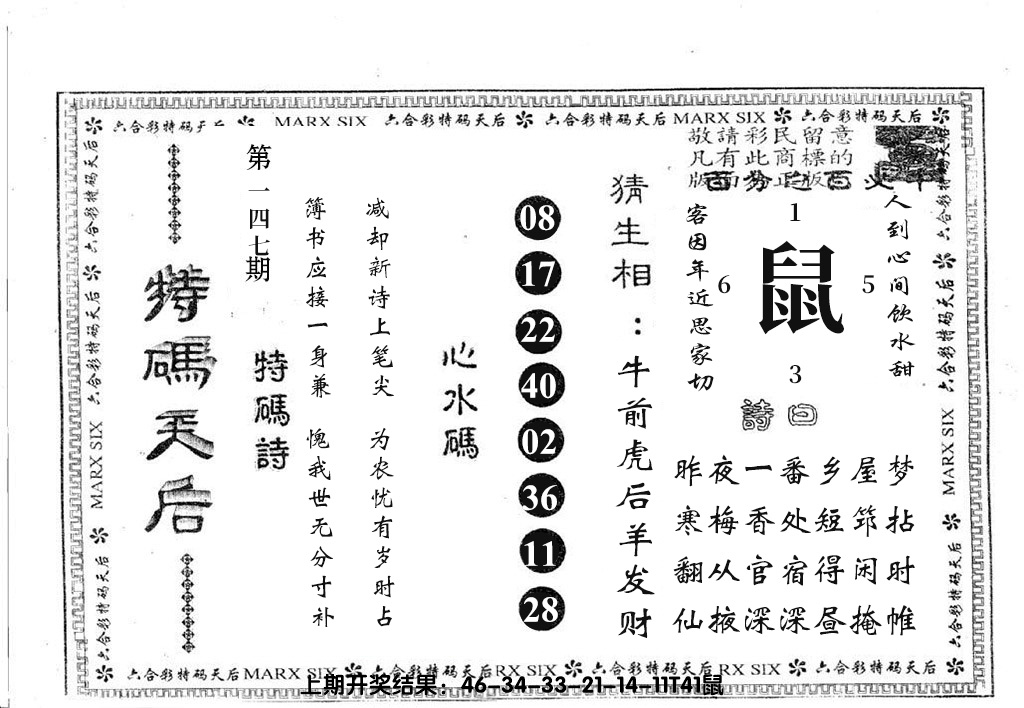 六合彩特码天后 MARX SIX 六合彩特码天后 六合彩特码天后 MARX SIX 六合彩特码天后
敬請彩民留意
凡有此商標的
版面分正版
特碼天后
第一四七期
特碼詩
簿书应接一身兼 愧我世无分寸补
减却新诗上笔尖 为农忧有岁时占
心水碼
08
17
22
40
02
36
11
28
猜生相：牛前虎后羊发财
客因年近思家切
1
6 鼠 5
3
人到心间饮水甜
詩曰
昨夜一番乡屋梦
寒梅香处短筇拈
翻从官宿得闲时
仙掖深深昼掩帷
六合彩特码天后
MARX SIX
六合彩特码天后
六合彩特码天后
MARX SIX
六合彩特码天后
六合彩特码天后MARX SIX 六合彩特码天后RX SIX 六合彩特码天后RX SIX 六合彩特码天后
上期开奖结果：46-34-33-21-14-11T41鼠